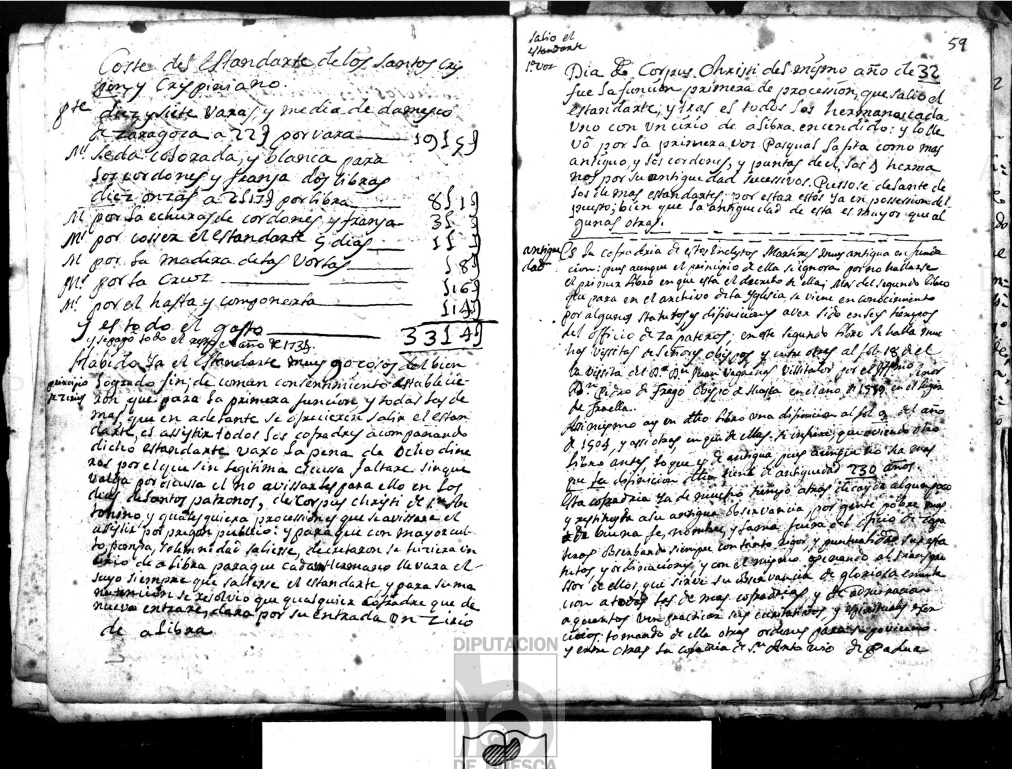 Coste del Estandarte de los Santos Cris
pin y Crispiniano.
pte diez y siete varas y media de damasco
de Zaragoza a 22 por vara 19 5
Mº Seda colorada, y blanca para
los cordones y franja dos libras
diez onzas a por libra 8 1
Mº por la echura de cordones y franja 3
Mº por cosser el Estandarte 5 dias 1
Mº por la madera de las Vortas 8
Mº por la Cruz 16
Mº por el hasta y componerla 14
Y es todo el gasto 33 4
y se pagó todo el año de 173
Habido ya el Estandarte muy gozosos del bien
principio
logrado fin; de comun consentimiento establecie
ron que para la primera funcion y todas las de
mas, que en adelante se ofrecieren salir el estan
darte, el assistir todos los cofadres acompañando
dicho estandarte vaxo la pena de ocho dine
ros por el que sin legitima escusa faltare sin que
valga por escusa el no avissarles para ello en los
dias de santos patronos, de Corpus Christi de Sn An
tonino y qualesquiera processiones que se avissare el
assistir por pregon publico: y para que con mayor cul
to, pompa, y solemnidad saliesse, decretaron se hiziera un
cirio de a libra para que cada Hermano llevara el
suyo siempre que saliesse el estandarte y para su ma
nutencion se resolvio que qualquier cofadre que de
nuevo entrare, dara por su entrada un Zirio
de a libra
59
Salio el
estandarte
1ª vez
Dia de Corpus Christi del mismo año de 32
fue la funcion primera de procession, que salio el
estandarte, y tras el todos los hermanos cada
uno con un cirio de a libra encendido: y lo lle
vó por la primera vez Pasqual Lafita como mas
antiguo, y los cordones, y puntas de el, los 4 herma
nos por su antiguedad sucessivos. Pusose delante de
los demas estandartes, por estar estos ya en possession del
puesto; bien que la antiguedad de esta es mayor que al
gunas otras.
antigue
dad
Es la cofadria de estos Inclytos Martires muy antigua en funda
cion: pues aunque el principio de ella se ignora por no hallarse
el primer libro en que esta el decreto de ella; Mas del segundo libro
que para en el archivo de la Yglesia se viene en conocimiento
por algunos statutos y disposiciones aver sido en los tiempos
del Officio de Zapateros; en este segundo libro se halla mu
chas visitas de señores obispos y entre otras al fol. 18 de el
la visita del Dn Juan Visitador por el
Dn Pedro de Frago Obispo de Huesca en el año
de
Assi mismo ay en dho libro una disposicion al fol 9 del año
de 1504, y assi otras en que de ellas se infiere, que aviendo otro
libro antes lo que es de antigua, pues aunque no ha mas
que la disposicion dha tiene de antiguedad 230 años
Esta cofadria ya de mucho tiempo atras
y restituyda a su antigua observancia, por gente pobre mas
de buena fe, nombre, y fama, fuera del officio de Zapa
teros observando siempre con tanto rigor y puntualidad sus esta
tutos y ordinaciones y con el mismo
de ellos que sirve su observancia de gloriosa emula
cion a todas las demas cofadrias, y de admiracion
a quantos ven practicar sus caritativos, y espirituales exer
cicios: tomando de ella otras ordenes para su govierno
y entre otras la cofadria de Sn Antonio de Padua
DIPUTACION
DE HUESCA